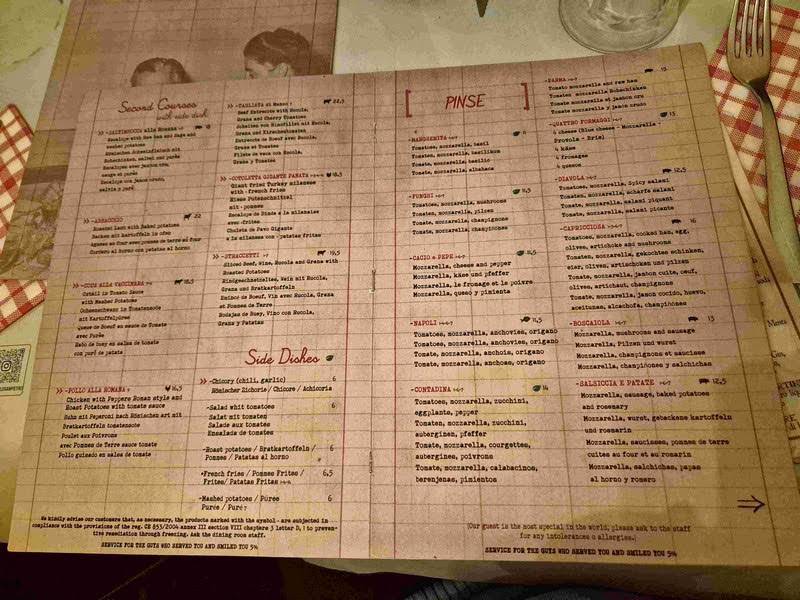 Second Courses
with side dish
-SALTIMBOCCA alla ROMANA
Escalops with Raw ham and Sage and
mashed potatoes
Römisches Schweinefleisch mit
Rohschinken, salvei und purée
Escalopes avec jambon cru,
sauge et purée
Escalope con jamon crudo,
salvia y puré
-ABBACCHIO 22
Roasted Lamb with Baked potatoes
Backen mit kartoffeln im ofen
Agneau au four avec pommes de terre al four
Cordero al horno con patatas al horno
-CODA ALLA VACCINARA 18,5
Oxtail in Tomato Sauce
with Mashed Potatoes
Ochsenschwanz in Tomatensoße
mit Kartoffelpüree
Queue de Boeuf en sauce de Tomate
avec Purée
Rabo de buey en salsa de tomate
con puré de patata
-POLLO ALLA ROMANA 16,5
Chicken with Peppers Roman style and
Roast Potatoes with tomato sauce
Huhn mit Peperoni nach Römischen art mit
Bratkartoffeln tomatensoße
Poulet aux Poivrons
avec Pommes de Terre sauce tomate
Pollo guisado en salsa de tomate
-TAGLIATA di Manzo 22,5
Beef Entrecote with Rucola,
Grana and Cherry Tomatoes
Scheiben von Rindfilet mit Rucola,
Grana und Kirschentomaten
Entrecote de Boeuf avec Rucola,
Grana et Tomates
Filete de vaca con Rucola,
Grana y Tomates
-COTOLETTA GIGANTE PANATA 18,5
Giant fried Turkey milanese
with - french fries
Riese Putenschnitzel
mit - pommes
Escalope de Dinde a la milanaise
avec -frites
Chuleta de Pavo Gigante
a la milanesa con - patatas fritas
-STRACCETTI 19,5
Sliced Beef, Wine, Rucola and Grana with
Roasted Potatoes
Rindgeschnetzeltes, Wein mit Rucola,
Grana und Bratkartoffeln
Emincé de Boeuf, Vin avec Rucola, Grana
et Pommes de Terre
Rodajas de Buey, Vino con Rucola,
Grana y Patatas
Side Dishes
-Chicory (chili, garlic) 6
Römischer Zichorie / Chicore / Achicoria
-Salad whit tomatoes 6
Salat mit tomaten
Salade aux tomates
Ensalada de tomates
-Roast potatoes / Bratkartoffeln / 6
Pommes / Patatas al horno
-French fries / Pommes Frites / 6,5
Frites / Patatas Fritas
-Mashed potatoes / Püree 6
Purée / Puré 7
We kindly advise our customers that, as necessary, the products marked with the symbol - are subjected in
compliance with the provisions of the reg. CE 853/2004 annex III section VIII chapters 3 letter D, 1 to preven-
tive remediation through freezing. Ask the dining room staff.
SERVICE FOR THE GUYS WHO SERVED YOU AND SMILED YOU 5%
PINSE
-MARGHERITA 1-6-7
Tomatoes, mozzarella, basil
Tomaten, mozzarella, basilikum
Tomate, mozzarella, basilic
Tomate, mozzarella, albahaca
-FUNGHI 1-6-7 11,5
Tomatoes, mozzarella, mushrooms
Tomaten, mozzarella, pilzen
Tomate, mozzarella, champignons
Tomate, mozzarella, champiñones
-CACIO e PEPE 1-6-7 11,5
Mozzarella, cheese and pepper
Mozzarella, käse und pfeffer
Mozzarella, le fromage et le poivre
Mozzarella, queso y pimienta
-NAPOLI 1-4-6-7 11,5
Tomatoes, mozzarella, anchovies, origano
Tomaten, mozzarella, anchovies, origano
Tomate, mozzarella, anchois, origano
Tomate, mozzarella, anchoas, origano
-CONTADINA 1-6-7 14
Tomatoes, mozzarella, zucchini,
eggplants, pepper
Tomaten, mozzarella, zucchini,
auberginen, pfeffer
Tomate, mozzarella, courgettes,
aubergines, poivrons
Tomate, mozzarella, calabacinos,
berenjenas, pimientos
-PARMA 1-6-7
Tomato mozzarella and raw ham
Tomaten mozzarella Rohschinken
Tomate mozzarella et jambon cru
Tomate mozzarella y jamón crudo
-QUATTRO FORMAGGI 1-6-7 13
4 cheese (Blue cheese - Mozzarella -
Provola - Brie)
4 käse
4 fromages
4 quesos
-DIAVOLA 1-6-7 12,5
Tomatoes, mozzarella, Spicy salami
Tomaten, mozzarella, scharfe salami
Tomate, mozzarella, salami piquant
Tomate, mozzarella, salami picante
-CAPRICCIOSA 16
Tomatoes, mozzarella, cooked ham, egg,
olives, artichoke and mushrooms
Tomaten, mozzarella, gekochtes schinken,
eier, oliven, artischocken und pilzen
Tomate, mozzarella, jambon cuite, oeuf,
olives, artichaut, champignons
Tomate, mozzarella, jamon cocido, huevo,
aceitunas, alcachofa, champiñones
-BOSCAIOLA 1-6-7 13
Mozzarella, mushrooms and sausage
Mozzarella, Pilzen und wurst
Mozzarella, champignons et saucisse
Mozzarella, champiñones y salchichas
-SALSICCIA E PATATE 1-6-7 12,5
Mozzarella, sausage, baked potatoes
and rosemary
Mozzarella, wurst, gebackene kartoffeln
und rosmarin
Mozzarella, saucisses, pommes de terre
cuites au four et au romarin
Mozzarella, salchichas, papas
al horno y romero
(Our guest is the most special in the world, please ask to the staff
for any intolerances o allergies.)
SERVICE FOR THE GUYS WHO SERVED YOU AND SMILED YOU 5%